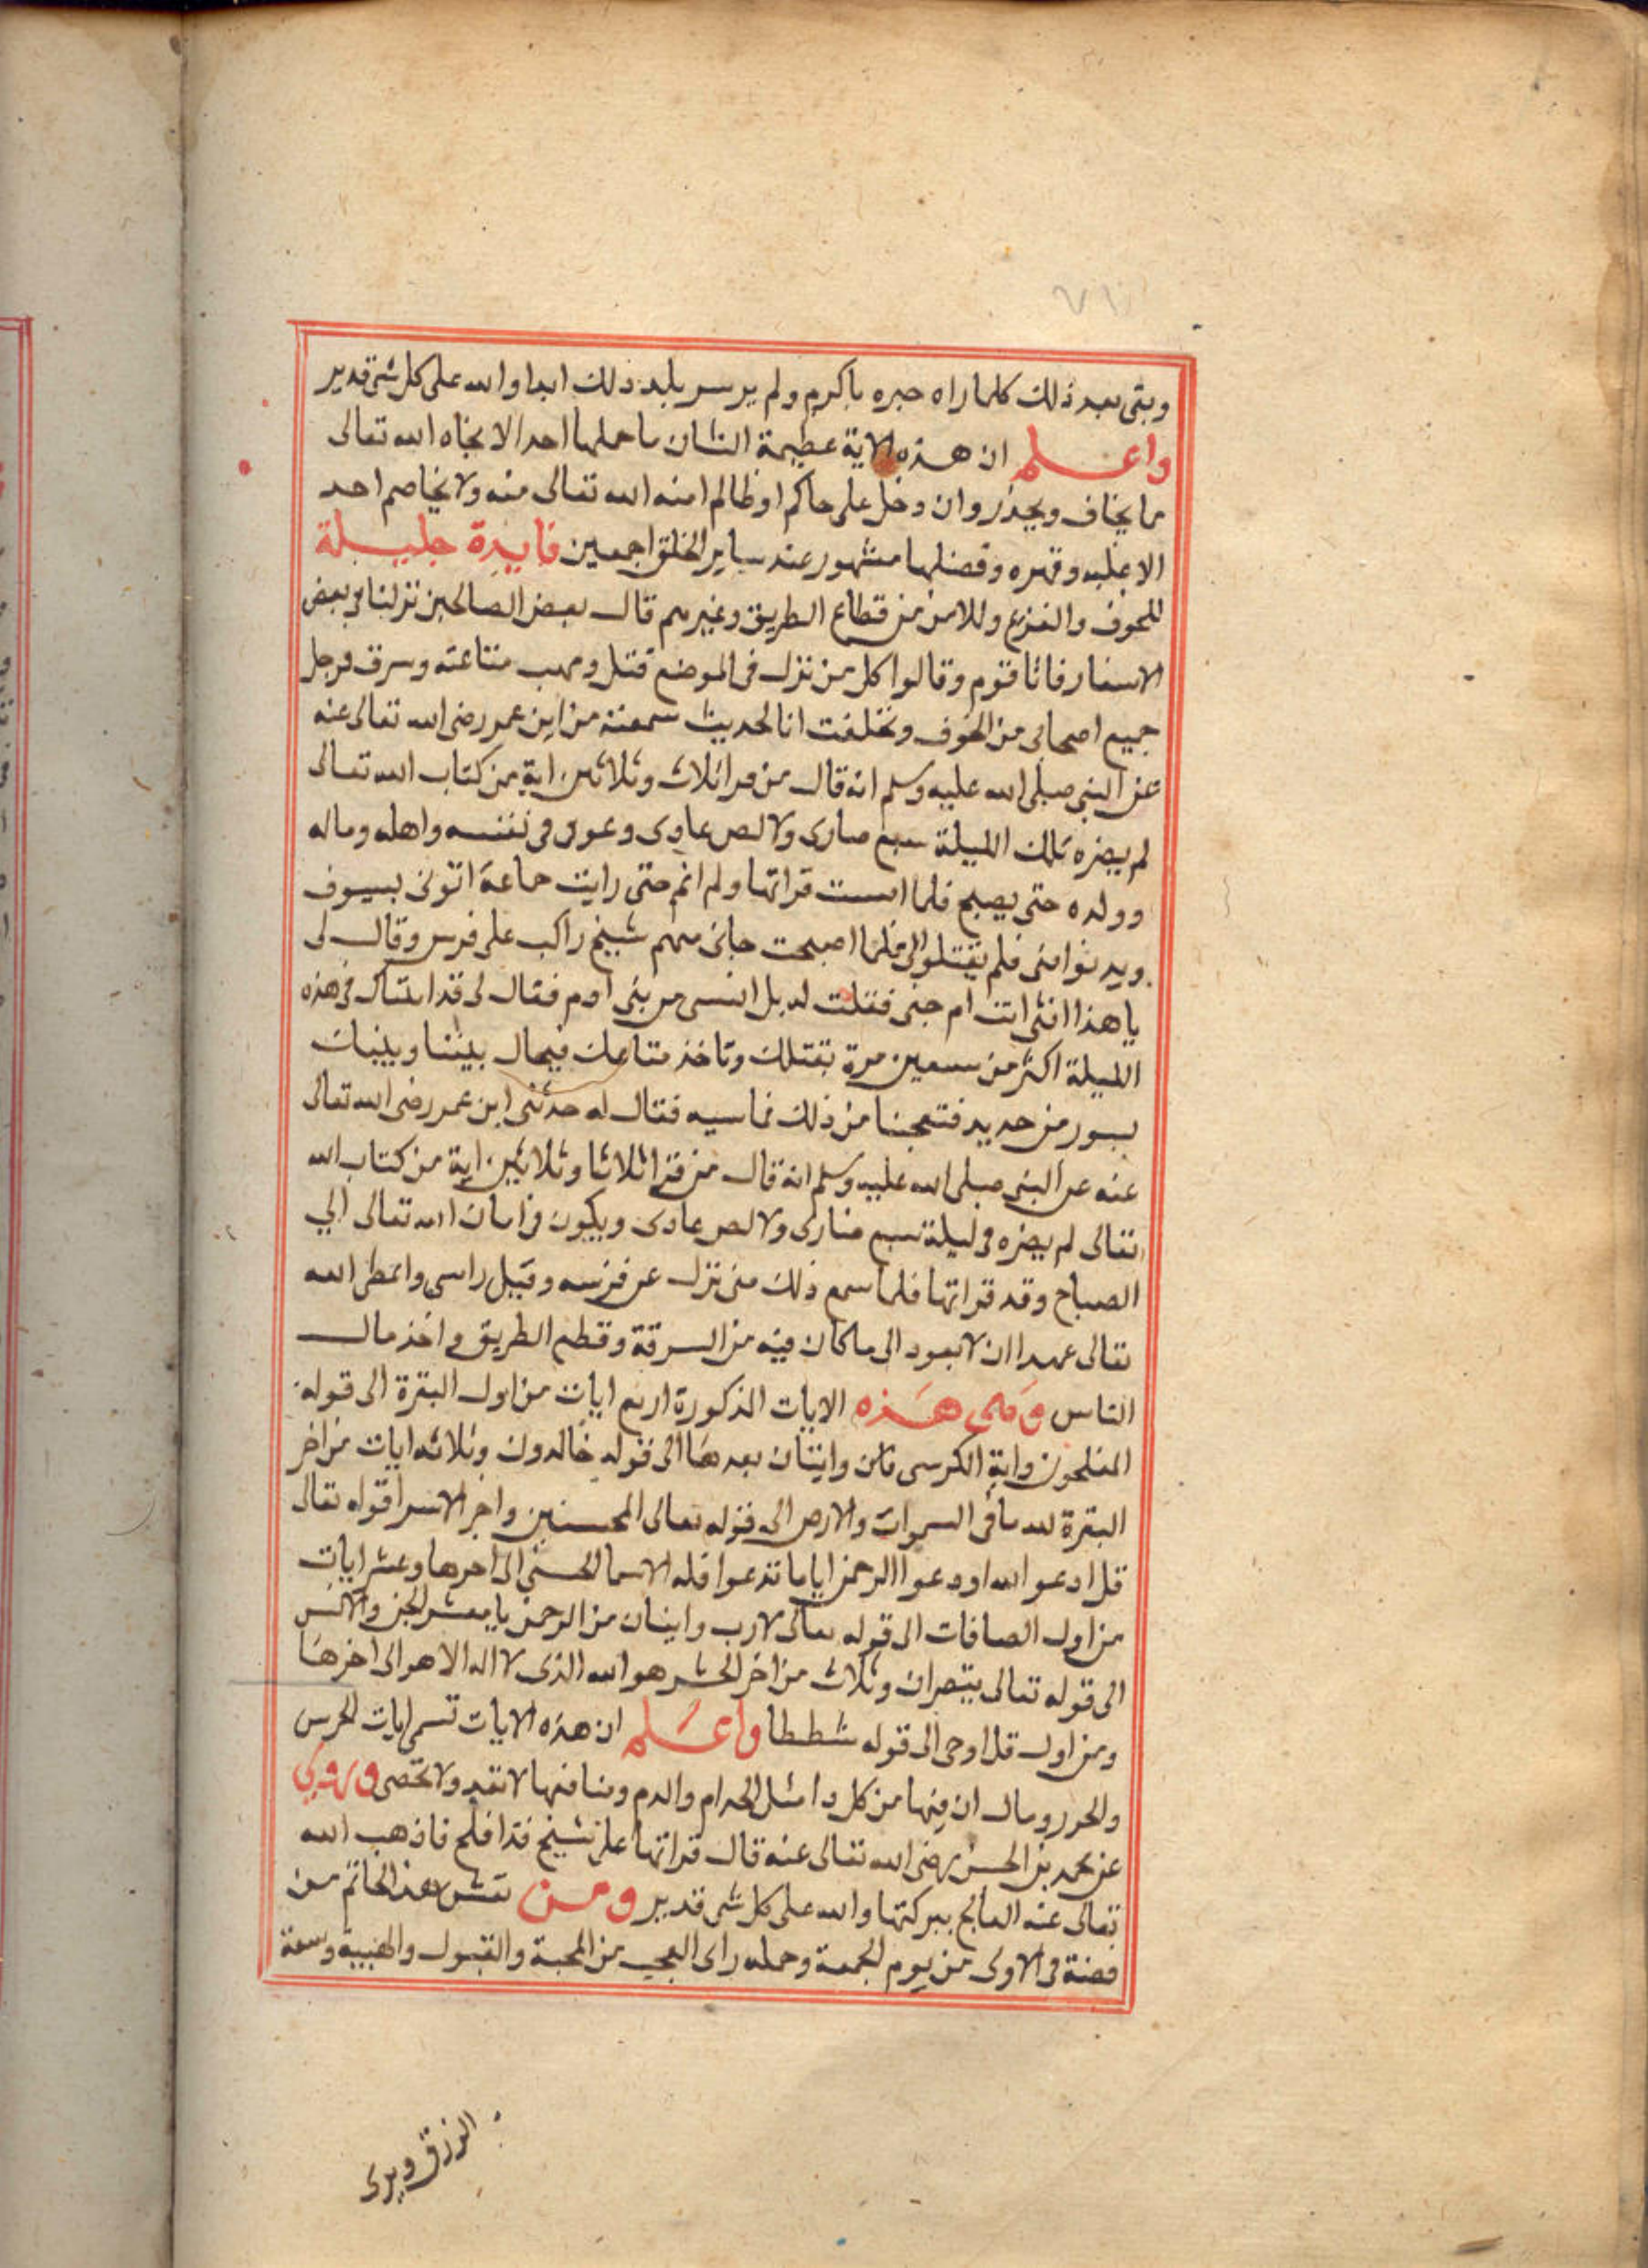 ٧١
وبقى بعد ذلك كلما راه جبره باكرم ولم ير سر بلد ذلك ابدا والله على كل شى قدير
واعلم ان هذه الاية عظيمة الشان ما حملها احد الا نجاه الله تعالى
مما يخاف ويحذر وان دخل على حاكم او ظالم امنه الله تعالى منه ولا يخاصم احد
الا غلبه وقهره وفضلها مشهور عند ساير الخلق اجمعين فايدة جليلة
للخوف والفزع وللامن من قطاع الطريق وغيرهم قال بعض الصالحين نزلنا فى بعض
الاسفار فاتا قوم وقالوا كل من نزل فى الموضع قتل ونهب متاعه وسرق فرحل
جميع اصحابى من الخوف وتخلفت انا لحديث سمعته من ابن عمر رضى الله تعالى عنه
عن النبى صلى الله عليه وسلم انه قال من قرا ثلاث وثلاثين اية من كتاب الله تعالى
لم يضره تلك الليلة سبع ضارى ولا لص عادى وعوفى فى نفسه واهله وماله
وولده حتى يصبح فلما امسيت قراتها ولم انم حتى رايت جماعة اتونى بسيوف
ويدنوا منى فلم يقتلونى فلما اصبحت جانى منهم شيخ راكب على فرس وقال لى
يا هذا انسى انت ام جنى فقلت له بل انسى من بنى ادم فقال لى قد اتيناك فى هذه
الليلة اكثر من سبعين مرة نقتلك وناخذ متاعك فيحال بيننا وبينك
بسور من حديد فتعجبنا من ذلك فما سببه فقال له حدثنى ابن عمر رضى الله تعالى
عنه عن النبى صلى الله عليه وسلم انه قال من قرا ثلاثا وثلاثين اية من كتاب الله
تعالى لم يضره فى ليلة سبع ضارى ولا لص عادى ويكون فى امان الله تعالى الي
الصباح وقد قراتها فلما سمع ذلك منى نزل عن فرسه وقبل راسى واعطى الله
تعالى عهدا ان لا يعود الى ما كان فيه من السرقة وقطع الطريق واخذ مال
الناس وهى هذه الايات المذكورة اربع ايات من اول البقرة الى قوله
المفلحون واية الكرسى وايتان بعدها الى قوله خالدون وثلاثه ايات من اخر
البقرة لله ما فى السموات والارض الى قوله تعالى المحسنين واخر الاسرا قوله تعالى
قل ادعو الله او دعوا الرحمن ايا ما تدعوا فله الاسما الحسنى الى اخرها وعشر ايات
من اول الصافات الى قوله تعالى لازب وايتان من الرحمن يا معشر الجن والانس
الى قوله تعالى ينتصران وثلاث من اخر الحشر هو الله الذى لا اله الا هو الى اخرها
ومن اول قل اوحى الى قوله شططا واعلم ان هذه الايات تسمى ايات الحرس
والحرز وقال ان فيها من كل دا مثل الجذام والدم ومنافعها لا تعد ولا تحصى وروي
عن محمد بن الحسن رضى الله تعالى عنه قال قراتها على شيخ قد افلج فاذهب الله
تعالى عنه الفالج ببركتها والله على كل شى قدير ومن نقش هذا الخاتم من
فضة فى الاولى من يوم الجمعة وحمله راى العجب من المحبة والقبول والهيبة وسعة
الرزق ويرى